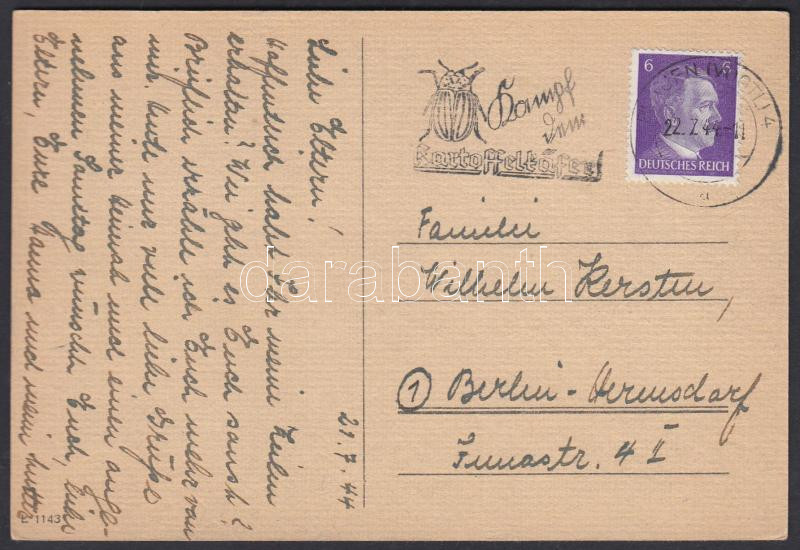 21.7.44
Liebe Eltern!
Hoffentlich habt Ihr meine Zeilen
erhalten? Wie geht es Euch sonst?
Brieflich erzähle ich Euch mehr von
mir. Heute nur viele liebe Grüße
aus meiner Heimat und einen ange-
nehmen Sonntag wünscht Euch, liebe
Eltern, Eure Hanna und mein
L 1143
Kampf
dem
Kartoffelkäfer!
6 6
DEUTSCHES REICH
22.7.44
a
Familie
Wilhelm Kersten,
1 Berlin-Hermsdorf
str. 4 I
darabanth